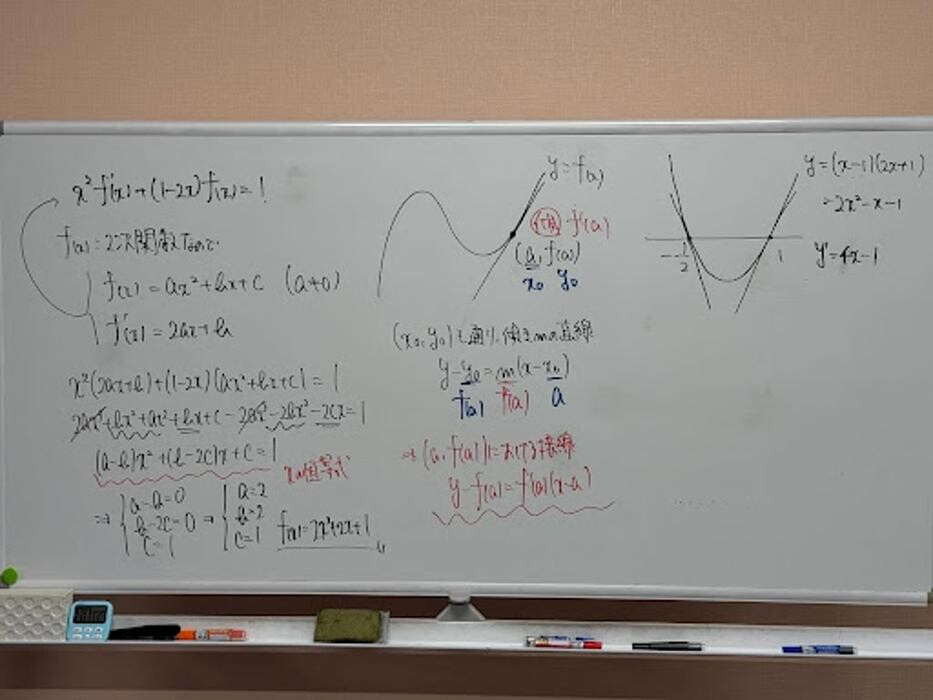 x²f'(x)+(1-2x)f(x)=1
f(x)=2次関数なので
f(x)=ax²+bx+c (a≠0)
f'(x)=2ax+b
x²(2ax+b)+(1-2x)(ax²+bx+c)=1
2ax³+bx²+ax²+bx+c-2ax³-2bx²-2cx=1
(a-b)x²+(b-2c)x+c=1
xの恒等式
⇒ a-b=0 ⇒ a=2
b-2c=0 b=2
c=1 c=1 f(x)=2x²+2x+1
y=f(x)
傾 f'(a)
(a, f(a))
x₀ y₀
(x₀, y₀)を通り、傾きmの直線
y-y₀=m(x-x₀)
f(a) f'(a) a
⇒(a, f(a))における接線
y-f(a)=f'(a)(x-a)
y=(x-1)(2x+1)
=2x²-x-1
y'=4x-1
-1/2 1